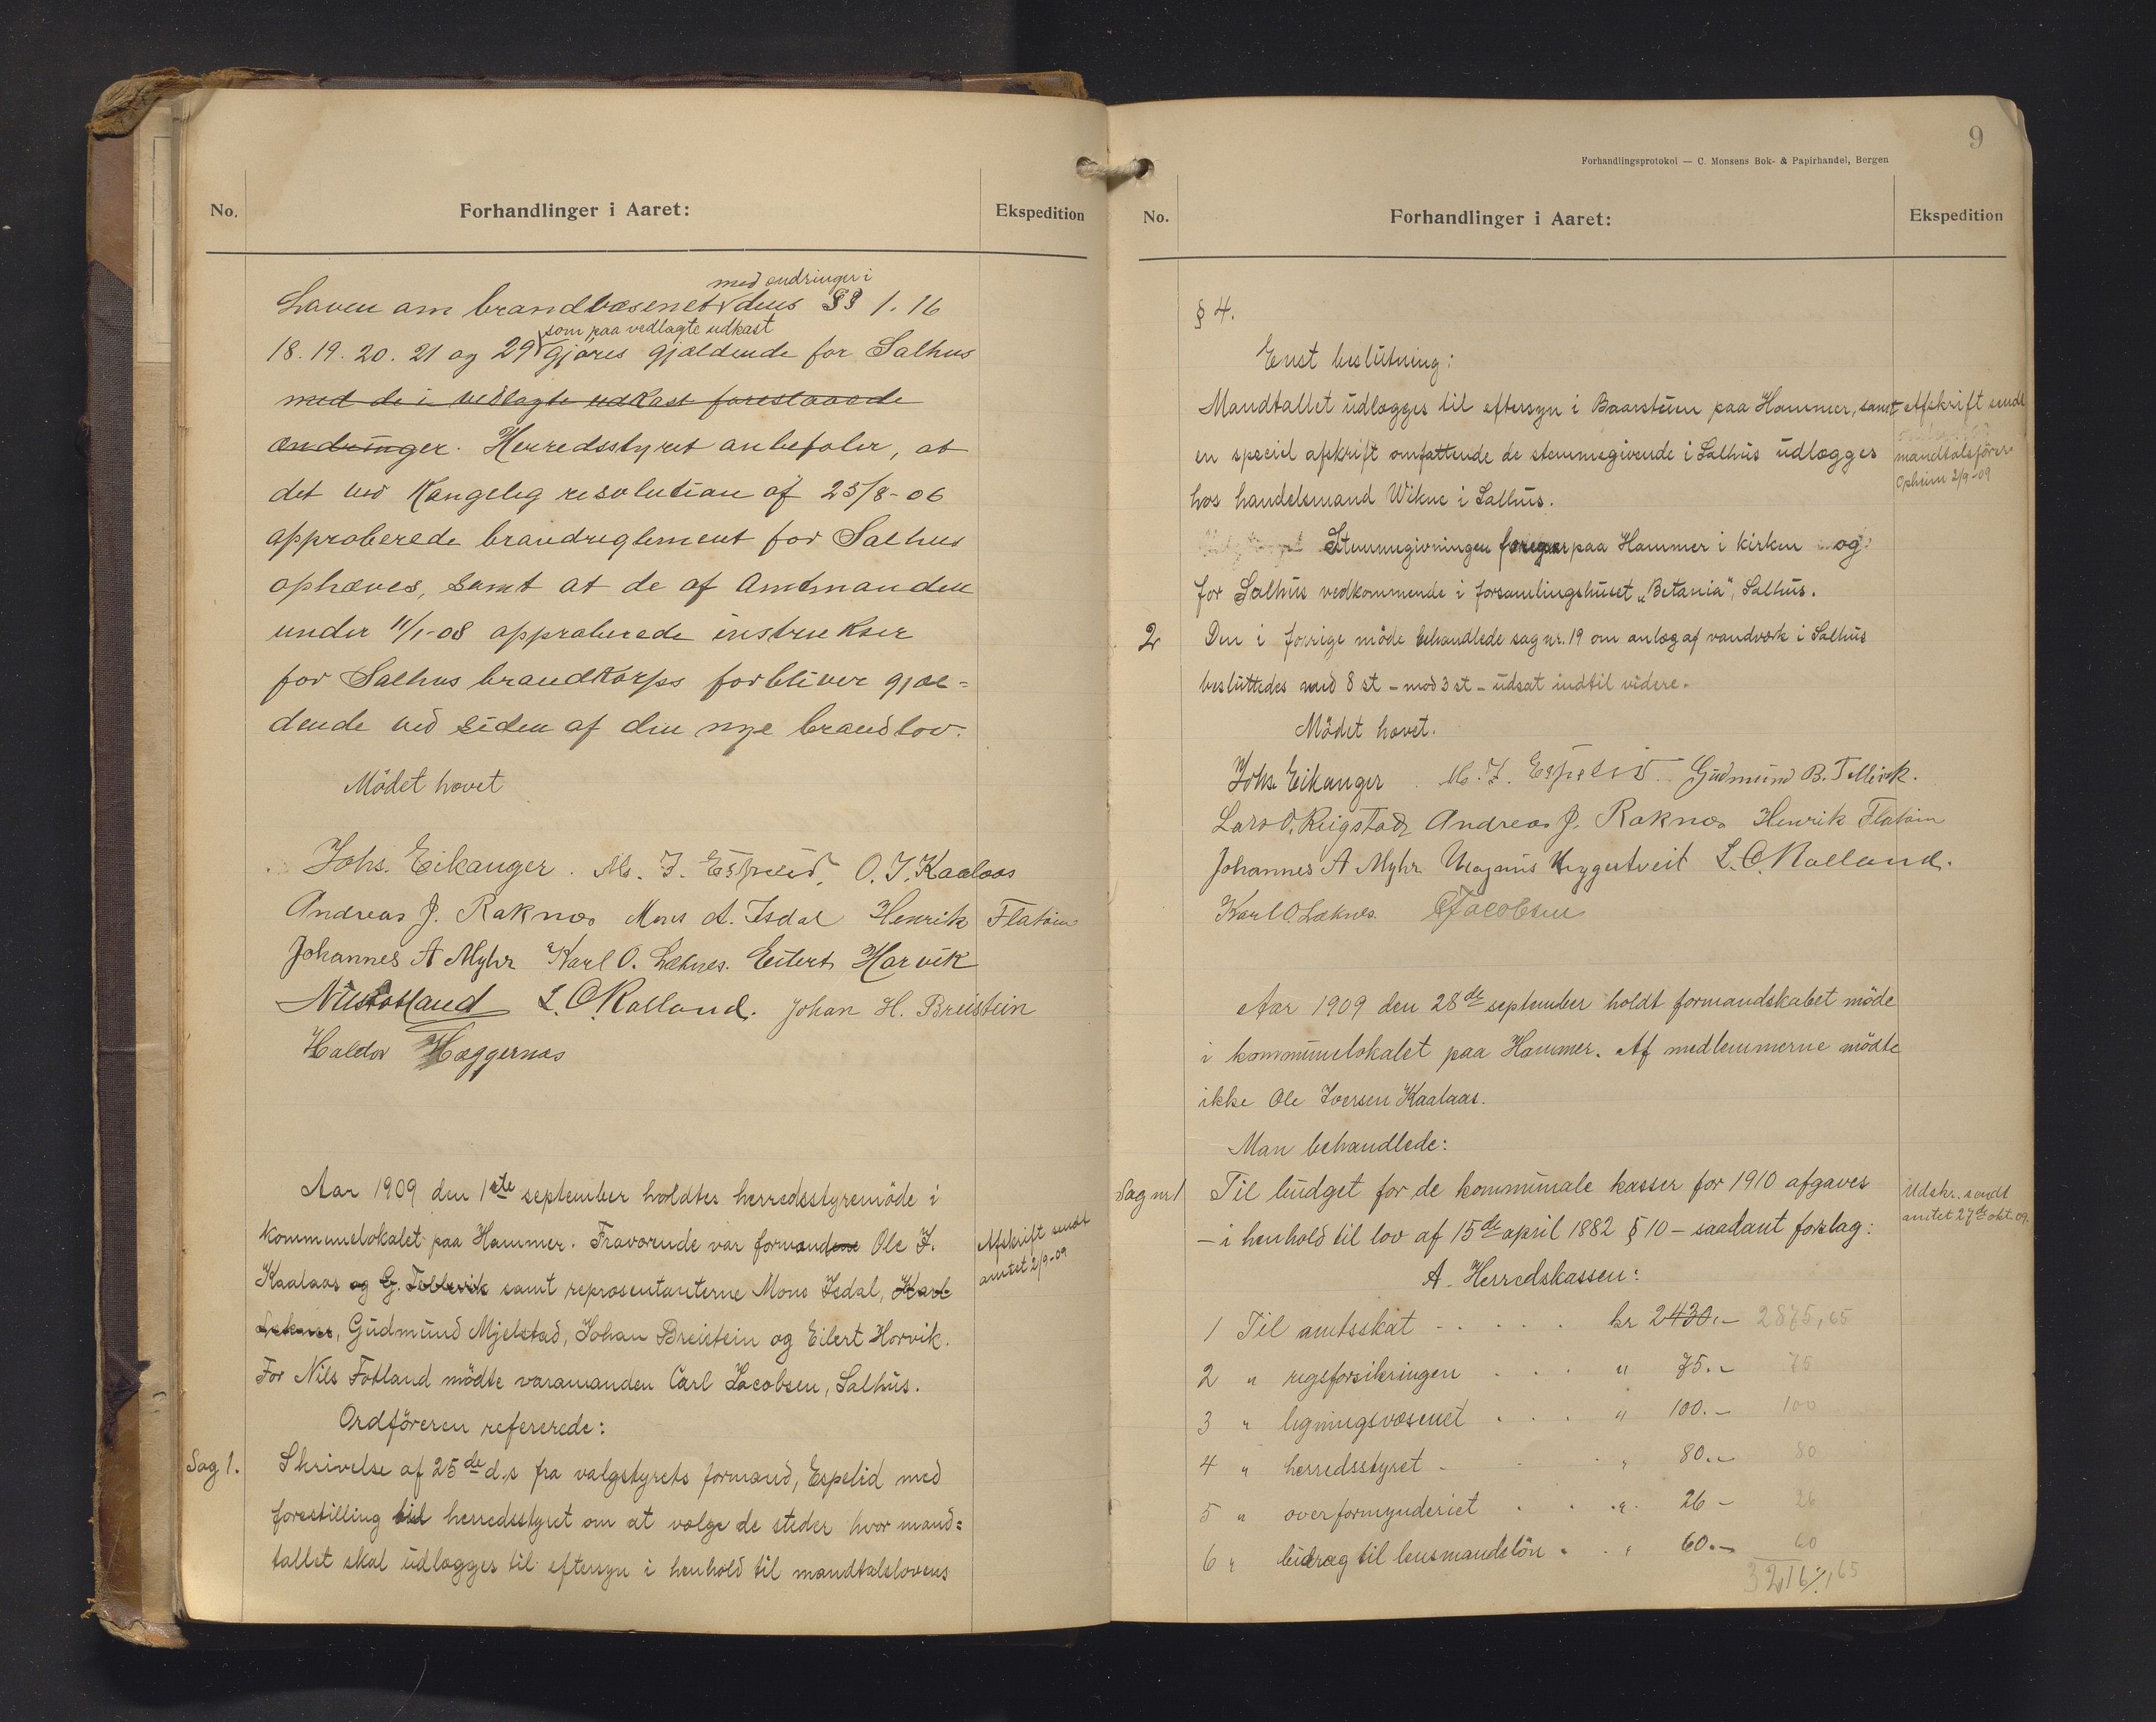 No.
Forhandlinger i Aaret:
Ekspedition
med ændringer i
Loven om brandvæsenet dens §§ 1. 16
som paa vedlagte udkast
18. 19. 20. 21 og 29 gjøres gjældende for Salhus
med de i vedlagte udkast foreslaaede
ændringer. Herredsstyret anbefaler, at
det ved Kongelig resolution af 25/8-06
approberede brandreglement for Salhus
ophæves, samt at de af Amtmanden
under 11/1-08 approberede instrukser
for Salhus brandkorps forbliver gjæl=
dende ved siden af den nye brandlov.
Mödet hævet
Johs. Eikanger. M. J. Espelid. O. I. Kaalaas
Andreas J. Raknes Mons A. Isdal Henrik Flatöin
Johannes A Myhr Karl O. Læknes. Eilert Horvik
Nils Fotland L. O. Rolland. Johan H. Breistein
Haldor Hæggernæs
Aar 1909 den 1ste september holdtes herredsstyremöde i
kommunelokalet paa Hammer. Fraværende var formændene Ole I.
Kaalaas og G. Tellevik samt repræsentanterne Mons Isdal, Karl
Læknes, Gudmund Mjelstad, Johan Breistein og Eilert Horvik.
For Nils Fotland mödte varamanden Carl Jacobsen, Salhus.
Afskrift sendt
amtet 2/9-09
Ordföreren refererede:
Sag 1.
Skrivelse af 25de d.s fra valgstyrets formand, Espelid med
forestilling til herredsstyret om at vælge de steder hvor mand=
tallet skal udlægges til eftersyn i henhold til mandtalslovens
9
Forhandlingsprotokol — C. Monsens Bok- & Papirhandel, Bergen
No.
Forhandlinger i Aaret:
Ekspedition
§ 4.
Enst beslutning:
Mandtallet udlægges til eftersyn i Baarstuen paa Hammer, samt
en speciel afskrift omfattende de stemmegivende i Salhus udlægges
hos handelsmand Wikne i Salhus.
Afskrift sendt
mandtalsförer
Opheim 2/9-09
Stemmegivningen foregaar paa Hammer i kirken og
for Salhus vedkommende i forsamlingshuset „Betania", Salhus.
2
Den i forrige möde behandlede sag nr. 19 om anlæg af vandværk i Salhus
besluttedes med 8 st - mod 3 st - udsat indtil videre.
Mödet hævet.
Johs. Eikanger. M. J. Espelid. Gudmund B. Tellevik.
Lars O. Reigstad Andreas J. Raknes Henrik Flatöin
Johannes A Myhr Magnus Hyggertveit L. O. Rolland.
Karl O. Læknes. C Jacobsen
Aar 1909 den 28de september holdt formandskabet möde
i kommunelokalet paa Hammer. Af medlemmerne mödte
ikke Ole Iversen Kaalaas.
Man behandlede:
Sag nr 1
Til budget for de kommunale kasser for 1910 afgaves
- i henhold til lov af 15de april 1882 § 10 - saadant forslag:
Udskr. sendt
amtet 27de okt 09.
A. Herredskassen:
1 Til amtsskat kr 2430.- 2875,65
2 " rugforsikringen " 75.- 75
3 " ligningsvæsenet " 100.- 100
4 " herredsstyret " 80.- 80
5 " overformynderiet " 26 - 26
6 " bidrag til lensmandslön " 60.- 60
3216,65